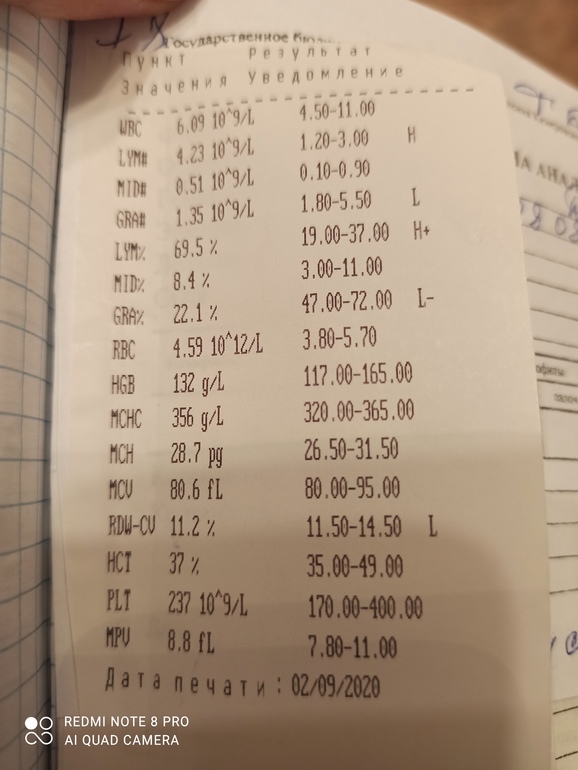 Государственное
Пункт Результат
Значения Уведомление
WBC 6.09 10^9/L 4.50-11.00
LYM# 4.23 10^9/L 1.20-3.00 H
MID# 0.51 10^9/L 0.10-0.90
GRA# 1.35 10^9/L 1.80-5.50 L
LYM% 69.5 % 19.00-37.00 H+
MID% 8.4 % 3.00-11.00
GRA% 22.1 % 47.00-72.00 L-
RBC 4.59 10^12/L 3.80-5.70
HGB 132 g/L 117.00-165.00
MCHC 356 g/L 320.00-365.00
MCH 28.7 pg 26.50-31.50
MCV 80.6 fL 80.00-95.00
RDW-CV 11.2 % 11.50-14.50 L
HCT 37 % 35.00-49.00
PLT 237 10^9/L 170.00-400.00
MPV 8.8 fL 7.80-11.00
Дата печати: 02/09/2020
REDMI NOTE 8 PRO
AI QUAD CAMERA